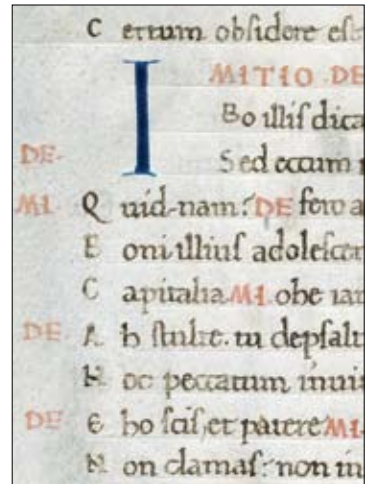 C ertum obſidere eſt
I MITIO DE
Bo illiſ dica
DE. Sed eccum
MI. Q uid-nam? DE fero a
E oni illiuſ adoleſcen
C apitalia MI. ohe iam
DE. A h ſtulte. tu depſalt
H oc peccatum in ui
DE. E ho ſciſ, et patere MI.
N on clamaſ? non in